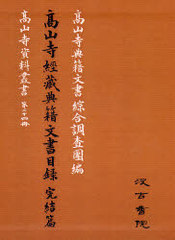 高山寺典籍文書綜合調査團編
高山寺經藏典籍文書目録 完結篇
高山寺資料叢書 第二十四冊
汲古書院